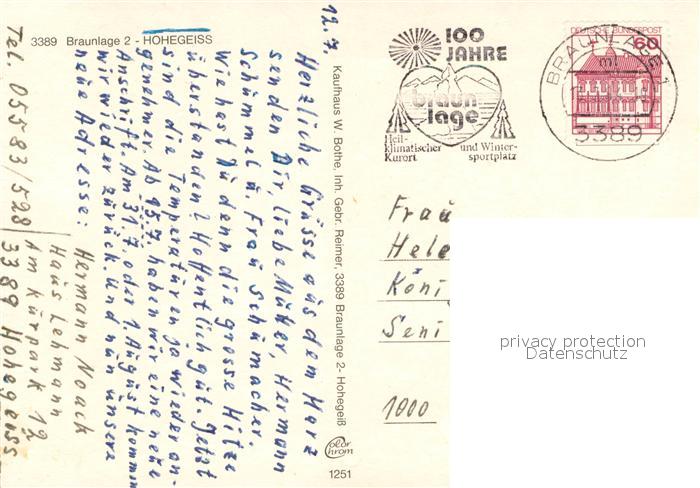 3389 Braunlage 2 - HOHEGEISS
12.7
Herzliche Grüsse aus dem Harz
senden Dir, liebe Mutter, Hermann
Schümmel u. Frau Schumacher.
Wie hast Du denn die grosse Hitze
überstanden? Hoffentlich gut. Jetzt
sind die Temperaturen ja wieder an-
genehmer. Ab 15.7. haben wir eine neue
Anschrift. Am 31.7. oder 1. August kommen
wir wieder zurück. Und nun unsere
neue Adresse: Hermann Noack
Haus Lehmann
Am Kurpark 12
3389 Hohegeiss
Tel 05583/528
Kaufhaus W. Bothe, Inh. Gebr. Reimer, 3389 Braunlage 2 - Hohegeiß
Color
chrom
1251
100
JAHRE
braun
lage
Heil-
klimatischer
Kurort
und Winter-
sportplatz
DEUTSCHE BUNDESPOST
60
BRAUNLAGE 1
3389
Frau
Hele
Köni
Seni
1000
privacy protection
Datenschutz